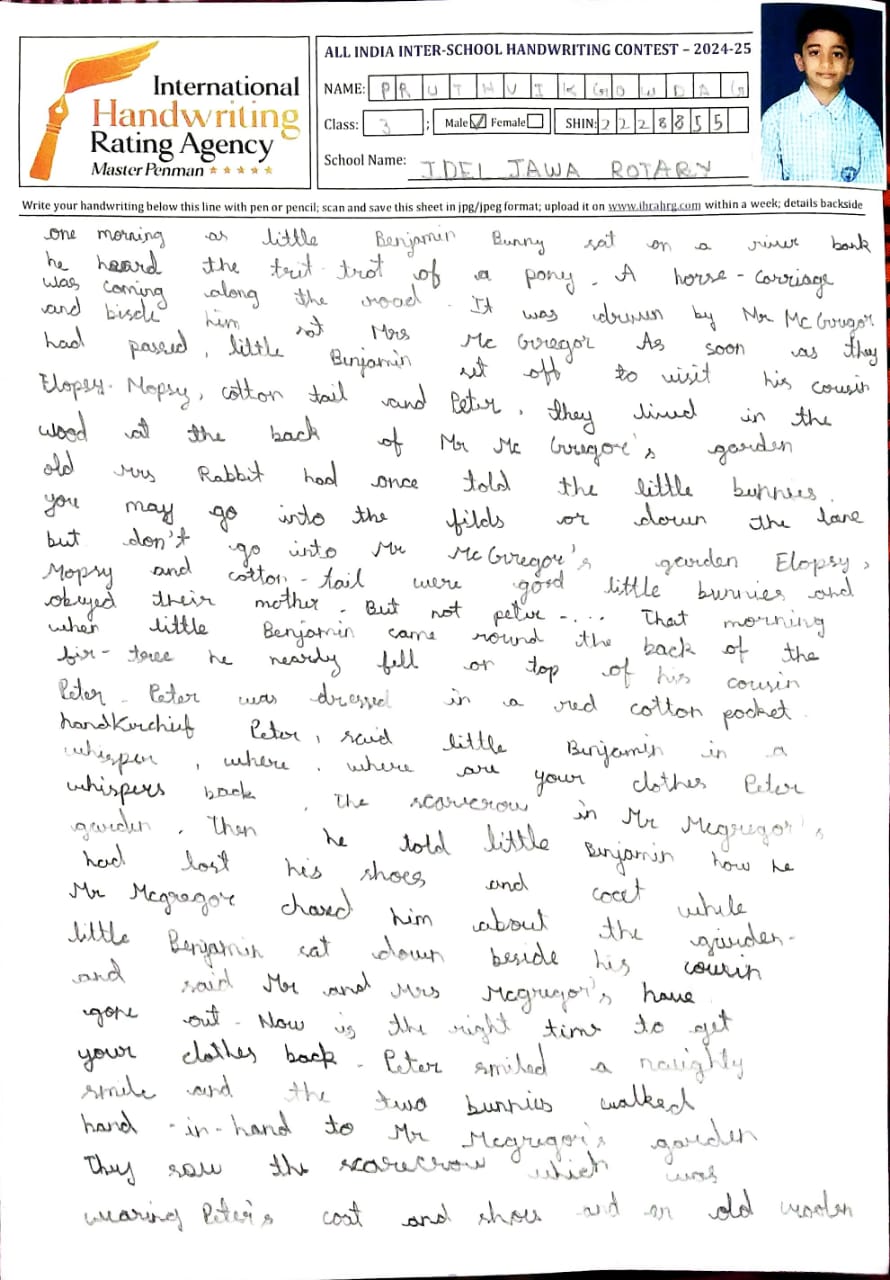 International
Handwriting
Rating Agency
Master Penman
ALL INDIA INTER-SCHOOL HANDWRITING CONTEST – 2024-25
NAME: PRUTHVIK GOWDA G
Class: 3 ; Male ☑ Female ☐ SHIN: 2228855
School Name: IDEL JAWA ROTARY
Write your handwriting below this line with pen or pencil; scan and save this sheet in jpg/jpeg format; upload it on www.ihrahrg.com within a week; details backside
one morning as little Benjamin Bunny sat on a river bank
he heard the trit-trot of a pony. A horse-carriage
was coming along the road. It was driven by Mr McGregor
and biside him sat Mrs Mc Gregor As soon as they
had passed, little Benjamin set off to visit his cousin
Flopsy. Mopsy, cotton tail and Peter, they lived in the
wood at the back of Mr Mc Gregor's garden
old Mrs Rabbit had once told the little bunnies.
you may go into the filds or down the lane
but don't go into Mr McGregor's garden Flopsy,
Mopsy and cotton-tail were good little bunnies and
obeyed their mother. But not peter -.... That morning
when little Benjamin came round the back of the
fir-tree he nearly fell on top of his cousin
Peter. Peter was dressed in a red cotton pocket.
handkerchief Peter, said little Benjamin in a
whisper, where. where are your clothes Peter
whispers back. The scarecrow in Mr Mcgregor's
garden. Then he told little Benjamin how he
had lost his shoes and coat while
Mr Mcgregor chased him about the garden.
little Benjamin sat down beside his cousin
and said Mr and Mrs Mcgregor's have
gone out. Now is the right time to get
your clothes back. Peter smiled a naughty
smile and the two bunnies walked
hand-in-hand to Mr Mcgregor's garden
They saw the scarecrow which was
wearing Peter's coat and shoes and an old woolen